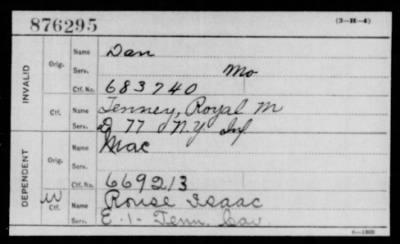 876295 (3-H-4)
INVALID
Orig.
Name Dan
Serv. Mo
Ctf. No. 683740
Ctf.
Name Tenney, Royal M
Serv. D 77 N.Y Inf
DEPENDENT
Orig.
Name Mac
Serv.
Ctf. No. 669213
W
Ctf.
Name Rouse Isaac
Serv. E. 1- Tenn. Cav.